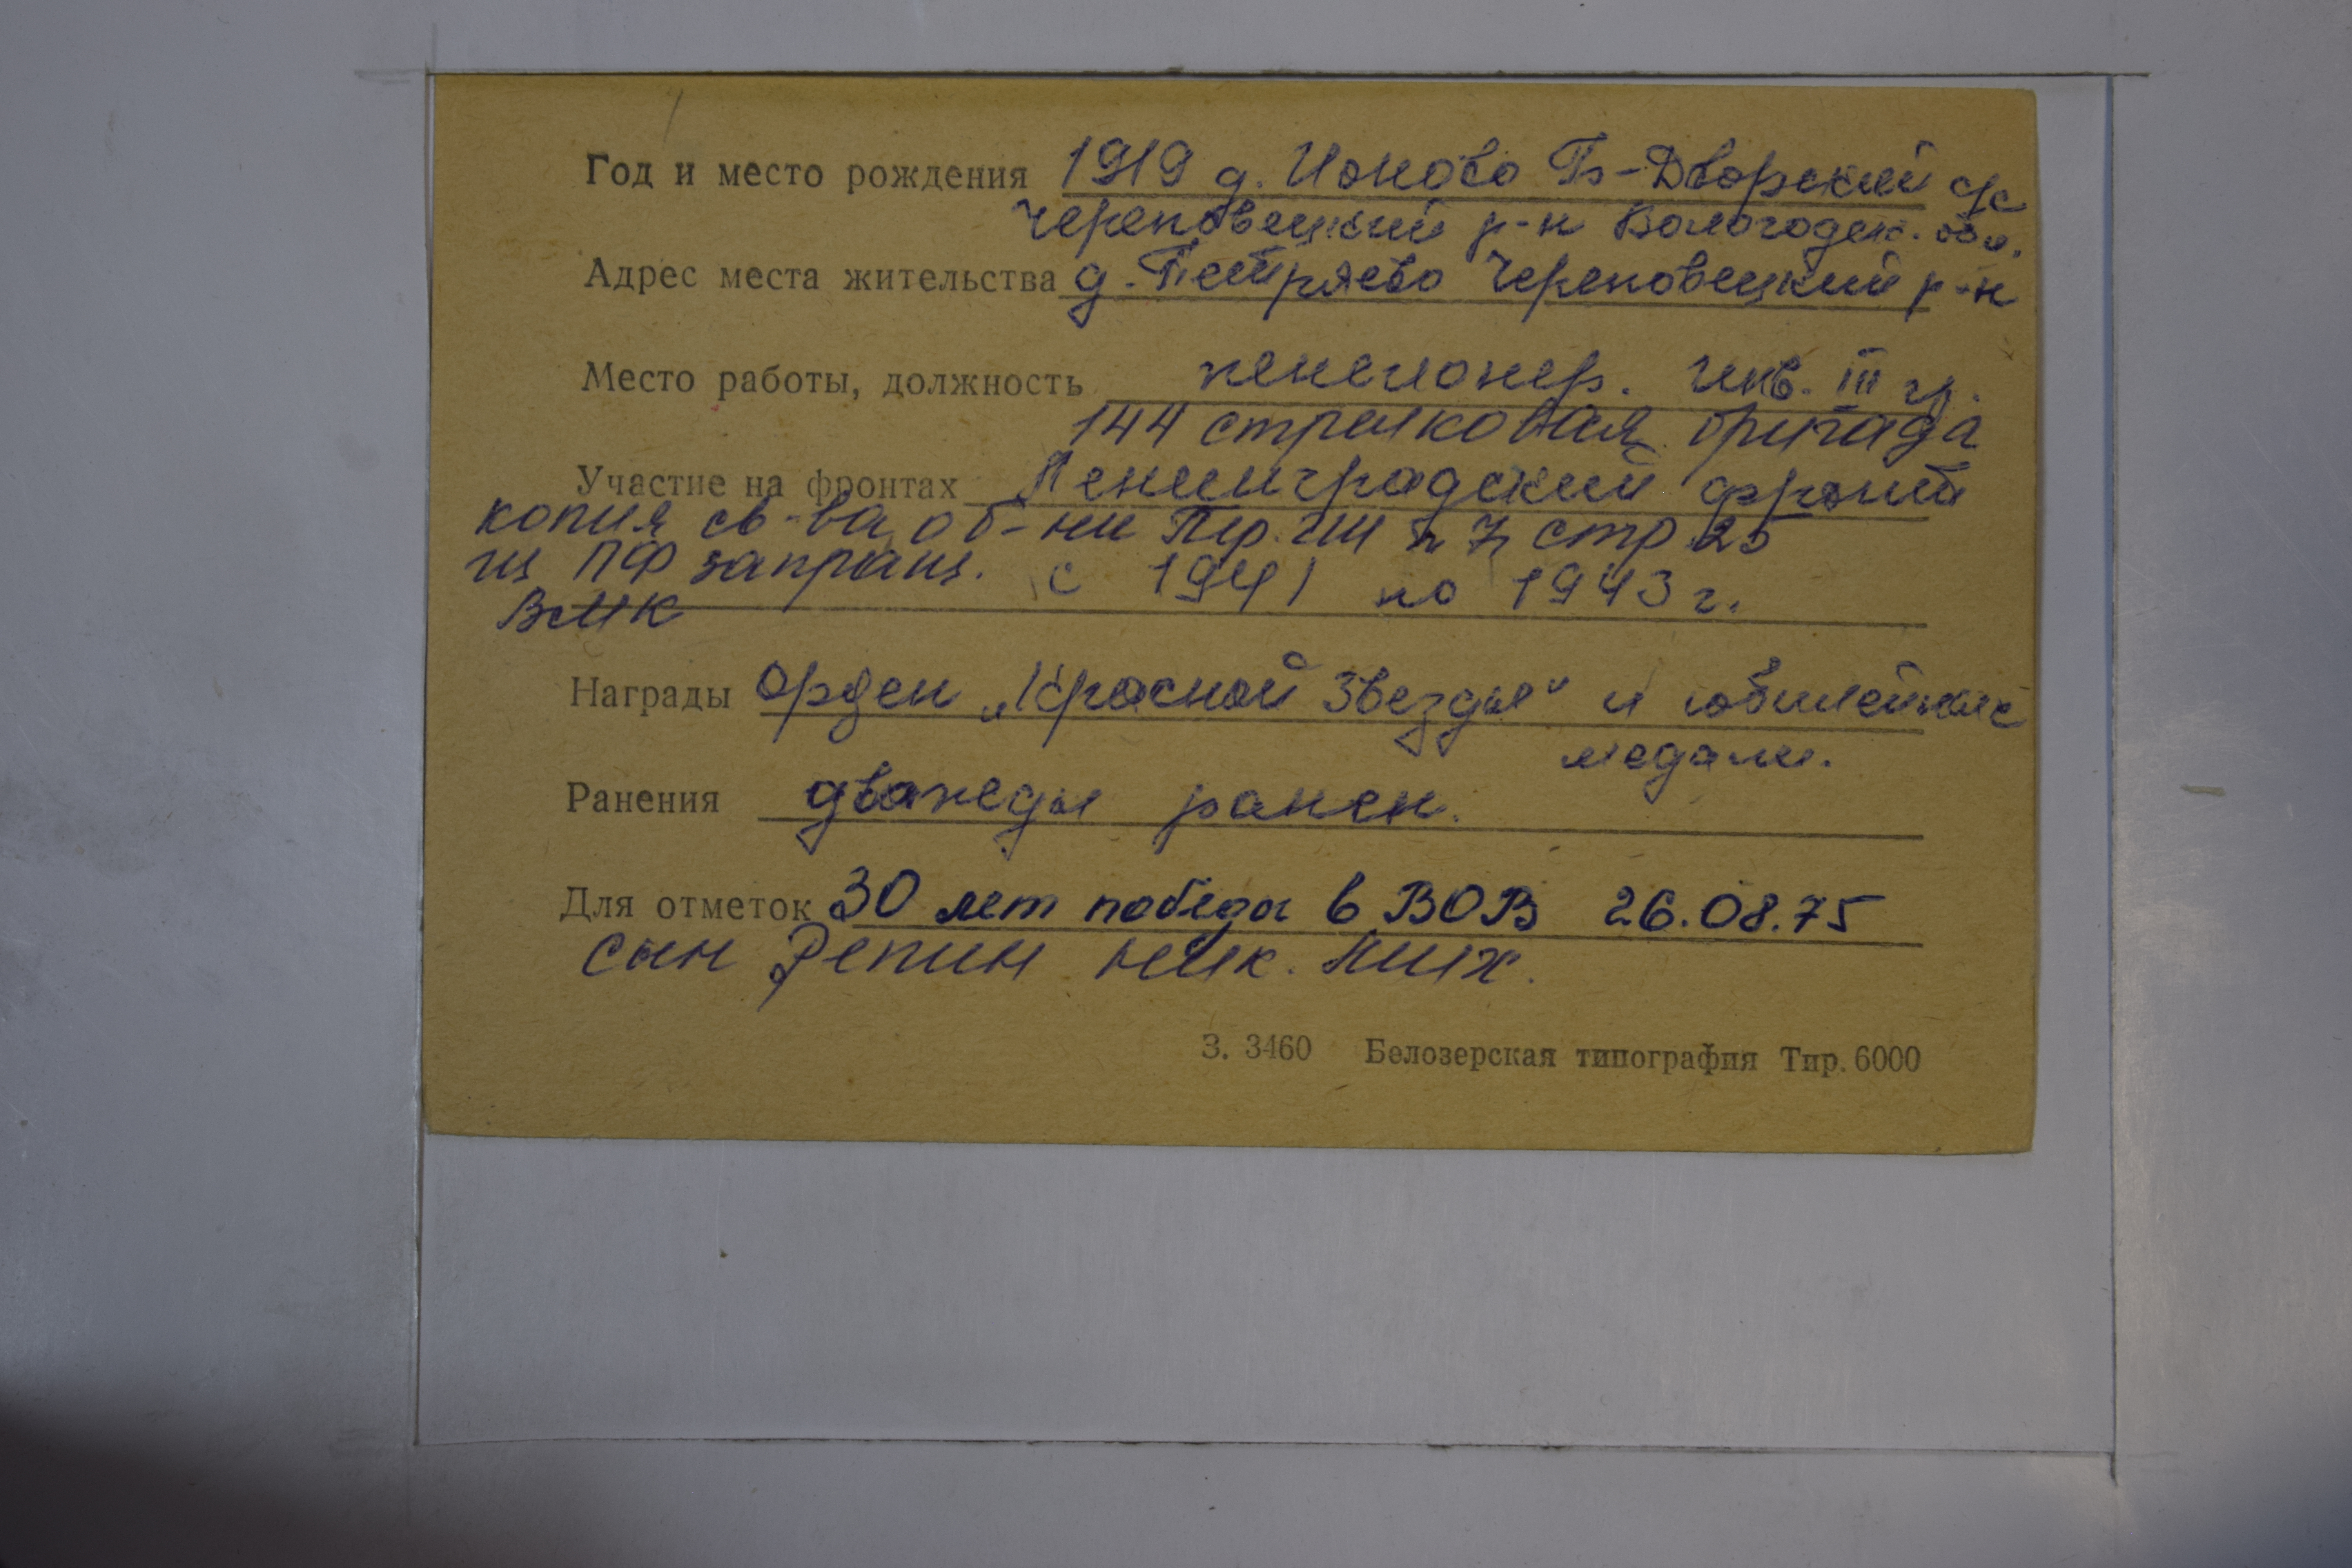 Год и место рождения 1919 д. Ионово Го-Дворский с/с
Череповецкий р-н Вологодск. обл.
Адрес места жительства д. Петряево Череповецкий р-н
Место работы, должность пенсионер. Инв. III гр.
144 стрелковая бригада
Участие на фронтах Ленинградский фронт
копия св-ва, об-ни п 7 стр 25
из ПФ запраш. с 1941 по 1943 г.
ВМК
Награды Орден „Красной Звезды" и юбилейные
медали.
Ранения дважды ранен.
Для отметок 30 лет победы в ВОВ 26.08.75
сын Репин Ник. Мих.
З. 3460 Белозерская типография Тир. 6000